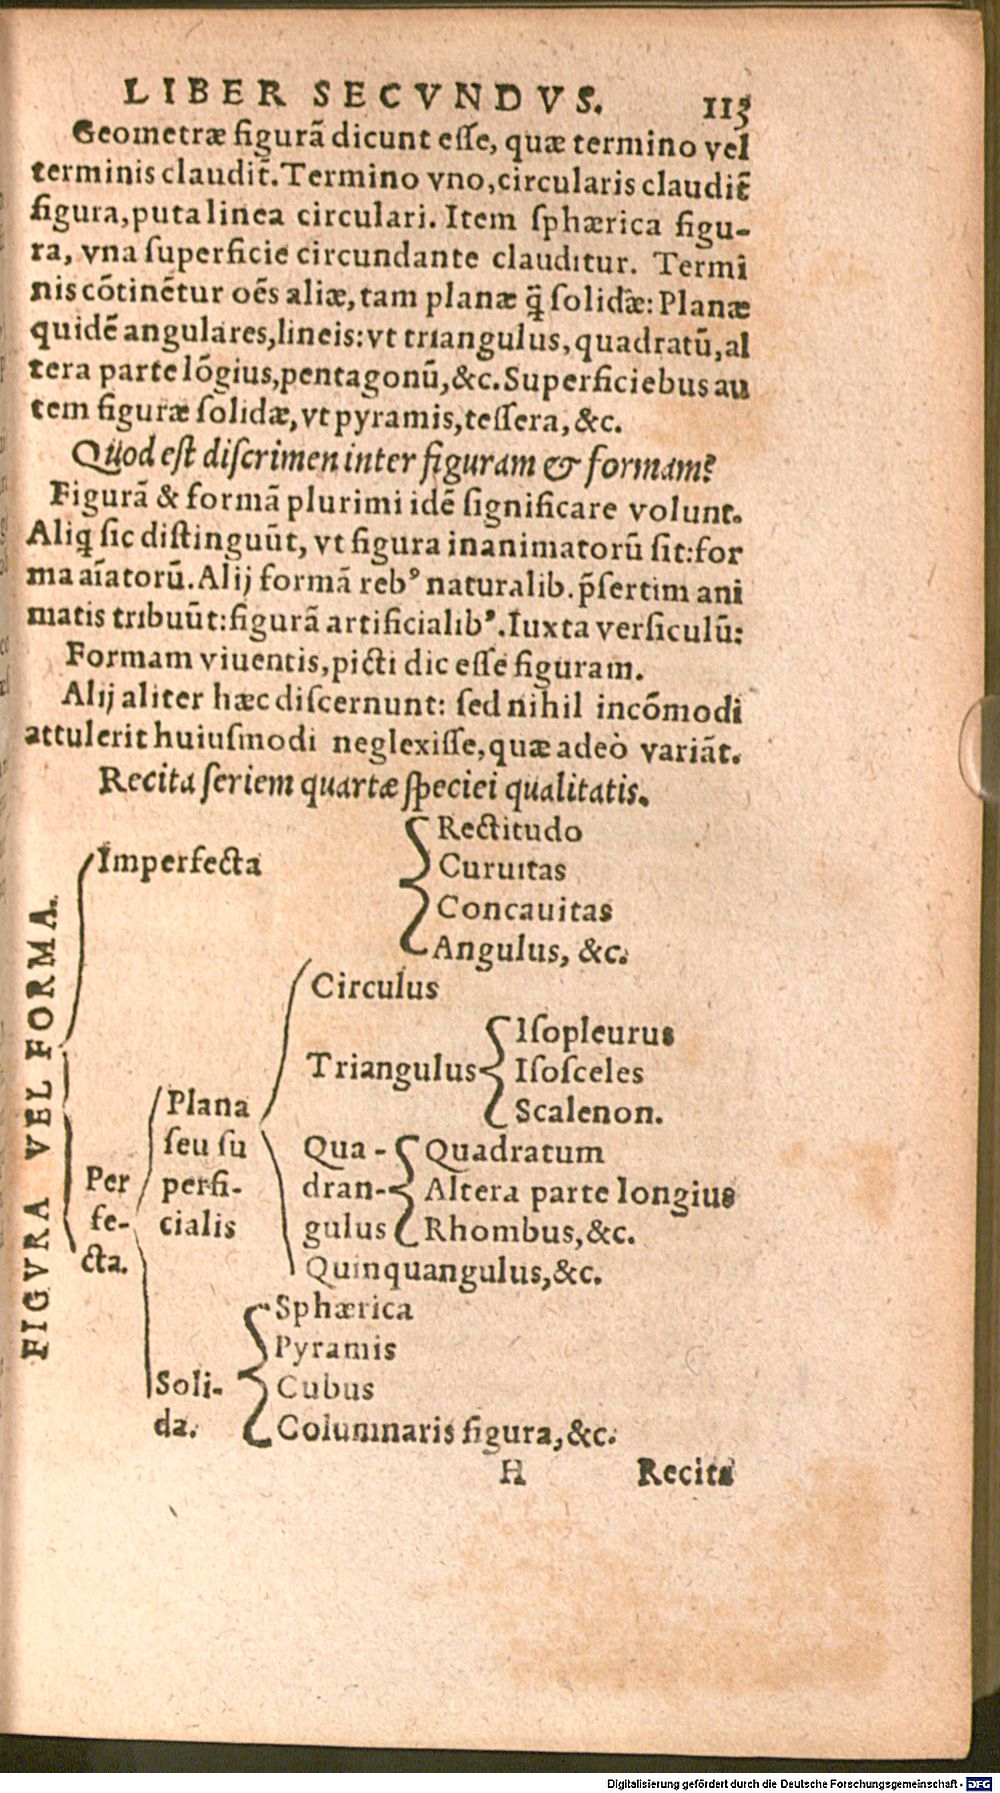 LIBER SECVNDVS. 113
Geometræ figurã dicunt eſſe, quæ termino vel
terminis claudit̃. Termino vno, circularis claudit̃
figura, puta linea circulari. Item ſphærica figu-
ra, vna ſuperficie circundante clauditur. Termi
nis cõtinẽtur oẽs aliæ, tam planæ q̃ ſolidæ: Planæ
quidẽ angulares, lineis: vt triangulus, quadratũ, al
tera parte lõgius, pentagonũ, &c. Superficiebus au
tem figuræ ſolidæ, vt pyramis, teſſera, &c.
Quod eſt diſcrimen inter figuram & formam?
Figurã & formã plurimi idẽ ſignificare volunt.
Aliq̃ ſic diſtinguũt, vt figura inanimatorũ ſit: for
ma aĩatorũ. Alij formã rebꝰ naturalib. p̃ſertim ani
matis tribuũt: figurã artificialibꝰ. Iuxta verſiculũ:
Formam viuentis, picti dic eſſe figuram.
Alij aliter hæc diſcernunt: ſed nihil incõmodi
attulerit huiuſmodi neglexiſſe, quæ adeò variãt.
Recita ſeriem quartæ ſpeciei qualitatis.
FIGVRA VEL FORMA.
Imperfecta
Rectitudo
Curuitas
Concauitas
Angulus, &c.
Per
fe-
cta.
Plana
ſeu ſu
perfi-
cialis
Circulus
Triangulus
Iſopleurus
Iſoſceles
Scalenon.
Qua-
dran-
gulus
Quadratum
Altera parte longius
Rhombus, &c.
Quinquangulus, &c.
Soli-
da.
Sphærica
Pyramis
Cubus
Columnaris figura, &c.
H Recita
Digitalisierung gefördert durch die Deutsche Forschungsgemeinschaft - DFG